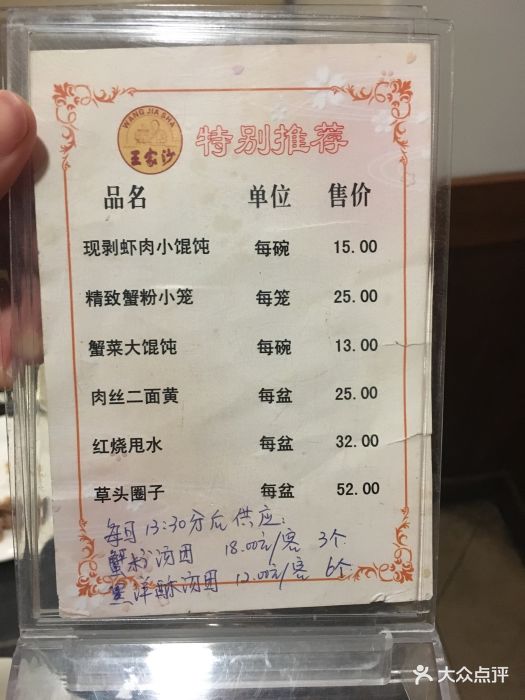 WANG JIA SHA
王家沙
特别推荐
品名 单位 售价
现剥虾肉小馄饨 每碗 15.00
精致蟹粉小笼 每笼 25.00
蟹菜大馄饨 每碗 13.00
肉丝二面黄 每盆 25.00
红烧甩水 每盆 32.00
草头圈子 每盆 52.00
每日13:30分后供应:
蟹粉汤团 18.00元/客 3个
黑洋酥汤团 12.00元/客 6个
大众点评